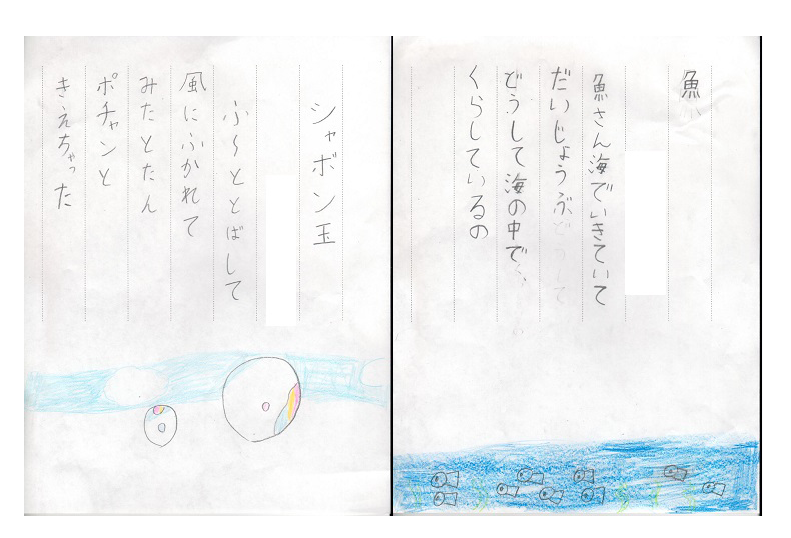 魚
魚さん海でいきていて
だいじょうぶ
どうして海の中で
くらしているの
シャボン玉
ふ～ととばして
風にふかれて
みたとたん
ポチャンと
きえちゃった